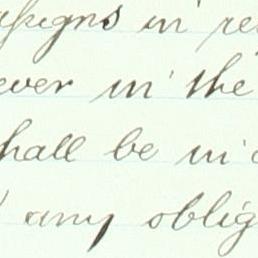 assigns in re
ever in the
hall be in
any oblig